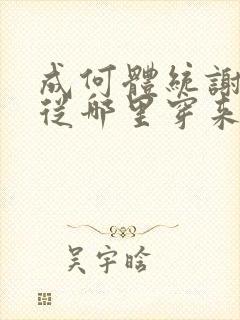 成何體統謝
從哪里穿来
吴宇晗